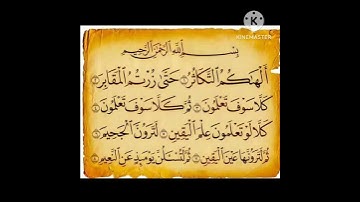 KINEMASTER
بِسْمِ اللَّهِ الرَّحْمَٰنِ الرَّحِيمِ
أَلْهَاكُمُ التَّكَاثُرُ ۝ حَتَّىٰ زُرْتُمُ الْمَقَابِرَ ۝
كَلَّا سَوْفَ تَعْلَمُونَ ۝ ثُمَّ كَلَّا سَوْفَ تَعْلَمُونَ ۝
كَلَّا لَوْ تَعْلَمُونَ عِلْمَ الْيَقِينِ ۝ لَتَرَوُنَّ الْجَحِيمَ ۝
ثُمَّ لَتَرَوُنَّهَا عَيْنَ الْيَقِينِ ۝ ثُمَّ لَتُسْأَلُنَّ يَوْمَئِذٍ عَنِ النَّعِيمِ ۝